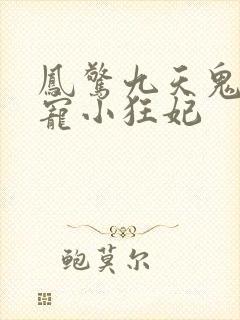 鳳驚九天鬼
寵小狂妃
鲍莫尔